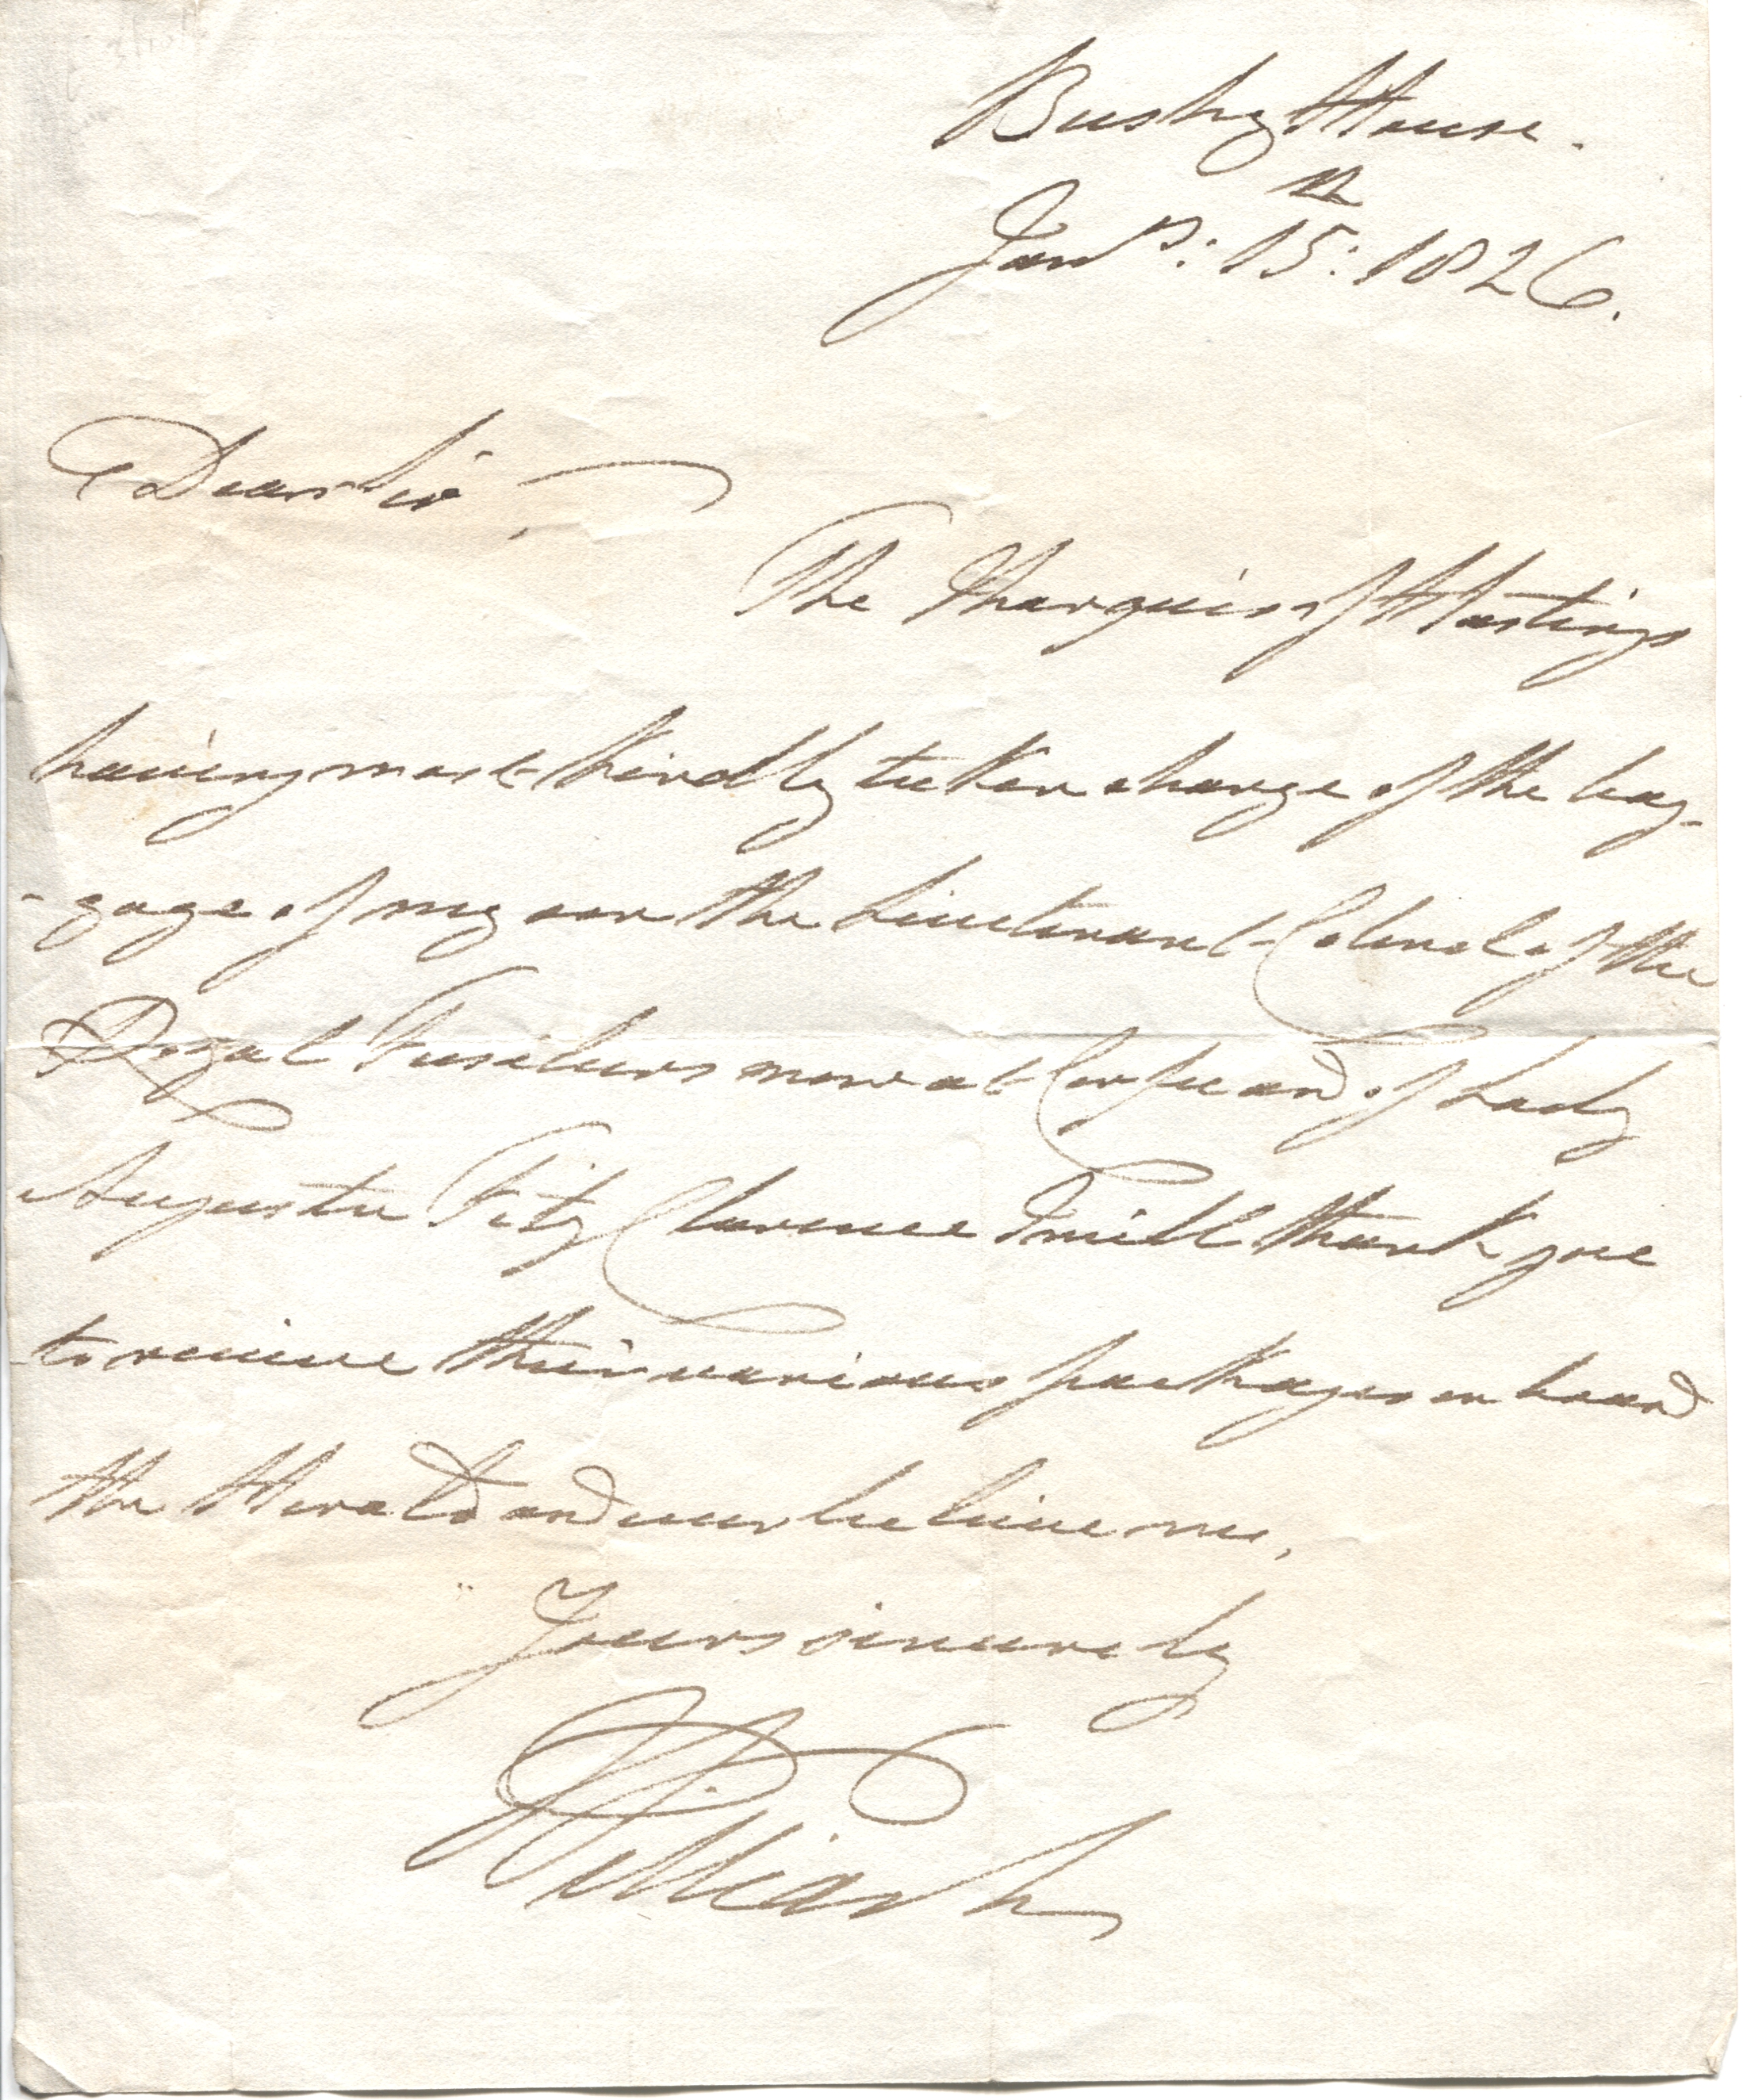 Bushy House.
Jany: 15th: 1826.
Dear Sir,
The Marquis of Hastings
having most kindly taken charge of the bag-
-gage of my son the Lieutenant Colonel of the
Royal Fusileers now at Corfu and of Lady
Augusta Fitz Clarence I will thank you
to receive their various packages on board
the Herald and ever believe me,
Yours sincerely
William